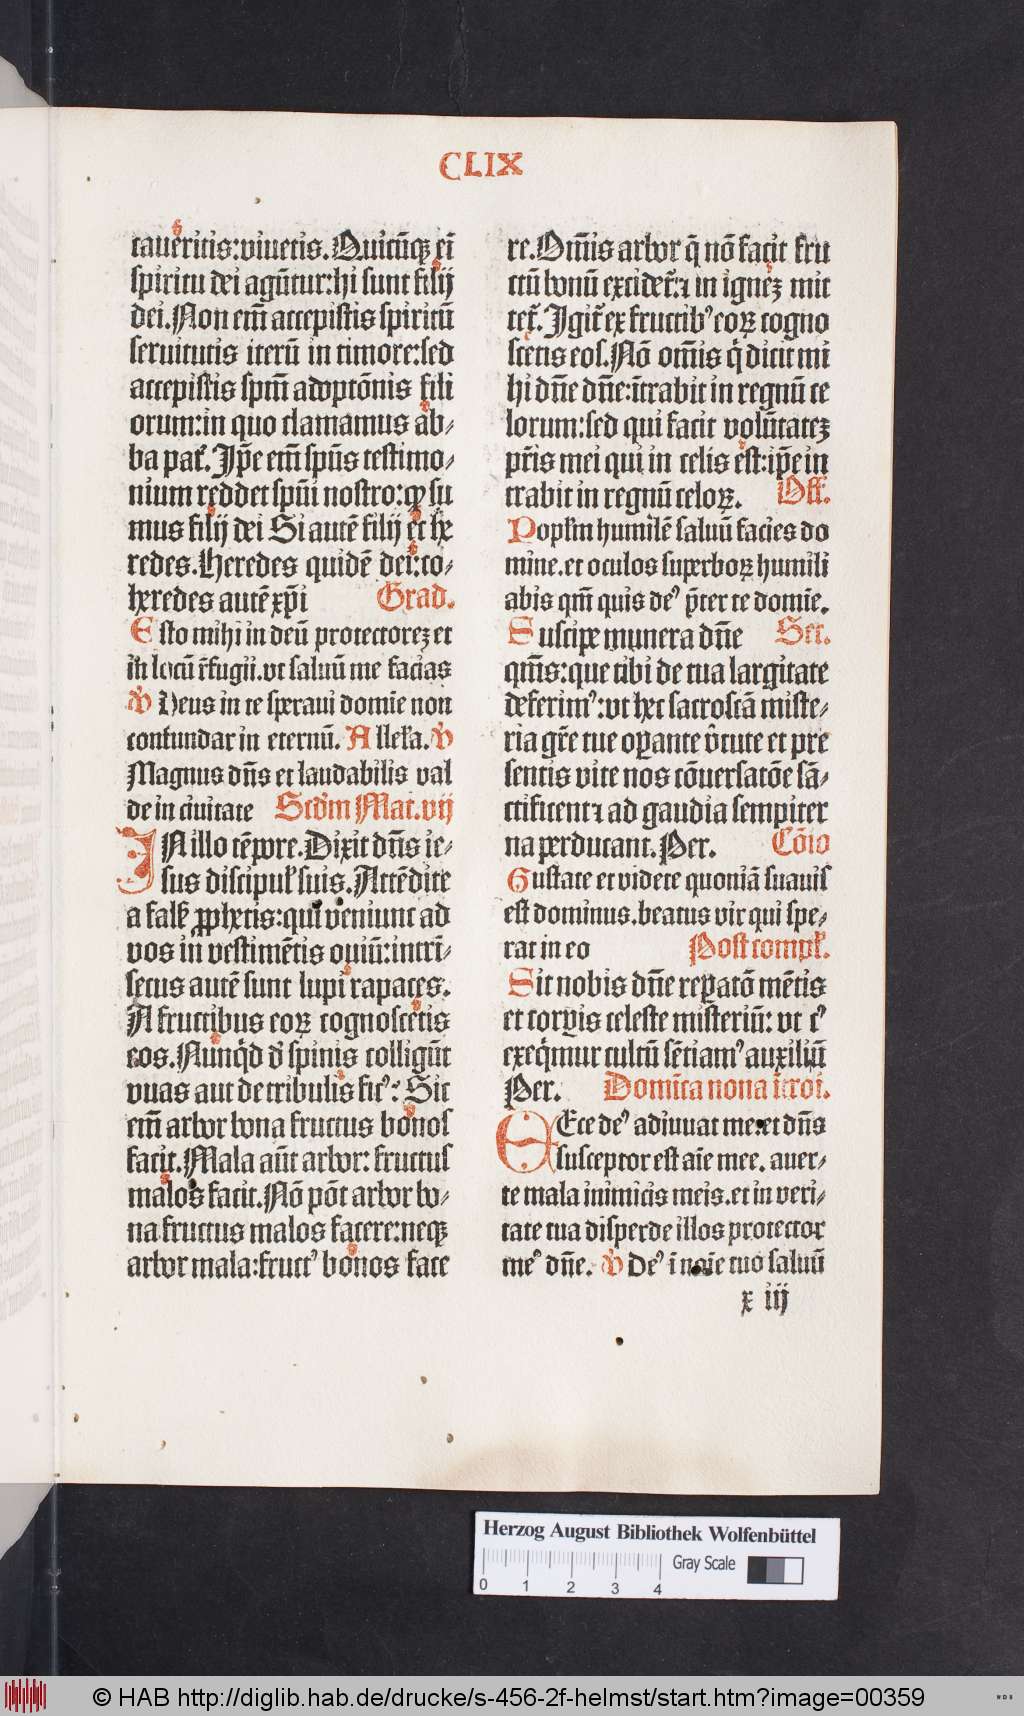 CLIX
caueritis:viuetis. Quicūq₃ eī
spiritu dei agūtur:hi sunt filij
dei. Non em̄ accepistis spiritū
seruitutis iterū in timore:sed
accepistis spm̄ adoptōnis fili
orum:in quo clamamus ab-
ba pat̄. Ip̄e em̄ spūs testimo-
nium reddet spūi nostro:ꝙ su
mus filij dei Si autē filij et he
redes. Heredes quidē dei:co-
heredes autē xp̄i Grad.
Esto mihi in deū protectorēz et
in locū r̄fugii. vt saluū me facias
℣ Deus in te speraui domīe non
confundar in eternū. Allel'a. ℣
Magnus dn̄s et laudabilis val
de in ciuitate Scd̄m Mat. vij
IN illo tēpore. Dixit dn̄s ie-
sus discipul' suis. Attēdite
a fals' ꝓphetis:qui veniunt ad
vos in vestimētis ouiū:intrī-
secus autē sunt lupi rapaces.
A fructibus eoꝝ cognoscetis
eos. Nunq̄d d' spinis colligūt
vuas aut de tribulis fic⁹: Sic
em̄ arbor bona fructus bonos
facit. Mala aūt arbor: fructus
malos facit. Nō pōt arbor bo-
na fructus malos facere:neq₃
arbor mala:fruct⁹ bonos face
re. Om̄is arbor q̄ nō facit fru
ctū bonū excidet̄:⁊ in ignez mit
tet̄. Igit̄ ex fructib⁹ eoꝝ cogno
scetis eos. Nō om̄is q̄ dicit mi
hi dn̄e dn̄e:ītrabit in regnū ce
lorum:sed qui facit volūtatez
pr̄is mei qui in celis est:ip̄e in
trabit in regnū celoꝝ. Off.
Popl'm humilē saluū facies do
mine. et oculos superboꝝ humili
abis qm̄ quis de⁹ p̄ter te domīe.
Suscipe munera dn̄e Secr.
qm̄s:que tibi de tua largitate
deferim⁹:vt hec sacroscā miste-
ria gr̄e tue oꝑante v̄tute et pre
sentis vite nos cōuersatōe sā-
ctificent ⁊ ad gaudia sempiter
na perducant. Per. Cōio
Gustate et videte quoniā suauis
est dominus. beatus vir qui spe-
rat in eo Post compl'.
Sit nobis dn̄e reꝑatō mētis
et corꝑis celeste misteriū: vt c⁹
exeq̄mur cultū sētiam⁹ auxiliū
Per. Domīca nona ītroi.
Ecce de⁹ adiuuat me. et dn̄s
susceptor est aīe mee. auer-
te mala inimicis meis. et in veri-
tate tua disperde illos protector
me⁹ dn̄e. ℣ De⁹ ī noīe tuo saluū
x iij
Herzog August Bibliothek Wolfenbüttel
Gray Scale
0 1 2 3 4
© HAB http://diglib.hab.de/drucke/s-456-2f-helmst/start.htm?image=00359